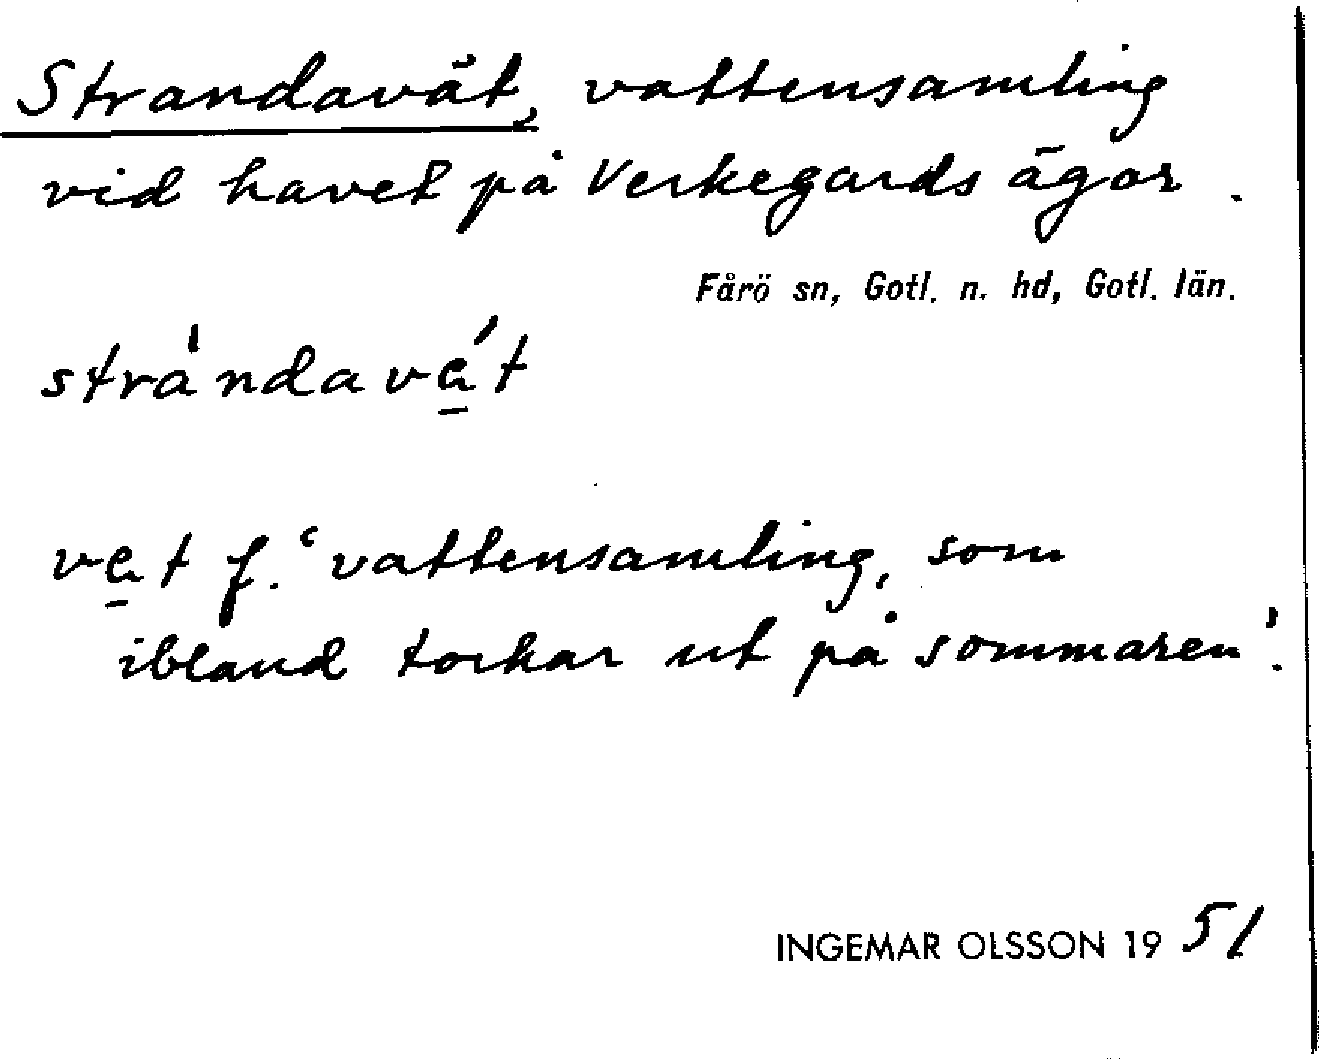 Strandavät, vattensamling
vid havet på Verkegards ägor.
Fårö sn, Gotl. n. hd, Gotl. län.
stra̍ndavä̱́t
vä̱t f. ‘vattensamling, som
ibland torkar ut på sommaren’.
INGEMAR OLSSON 19 51